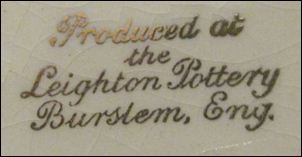 Produced at
the
Leighton Pottery
Burslem, Eng.